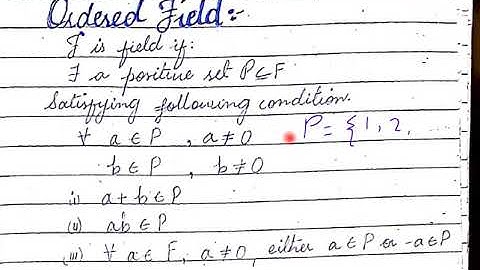 Ordered Field:-
F is field if:
∃ a positive set P⊆F
Satisfying following condition.
∀ a ∈ P , a ≠ 0 P = {1, 2,
b ∈ P , b ≠ 0
(i) a + b ∈ P
(ii) ab ∈ P
(iii) ∀ a ∈ F, a ≠ 0, either a ∈ P or -a ∈ P